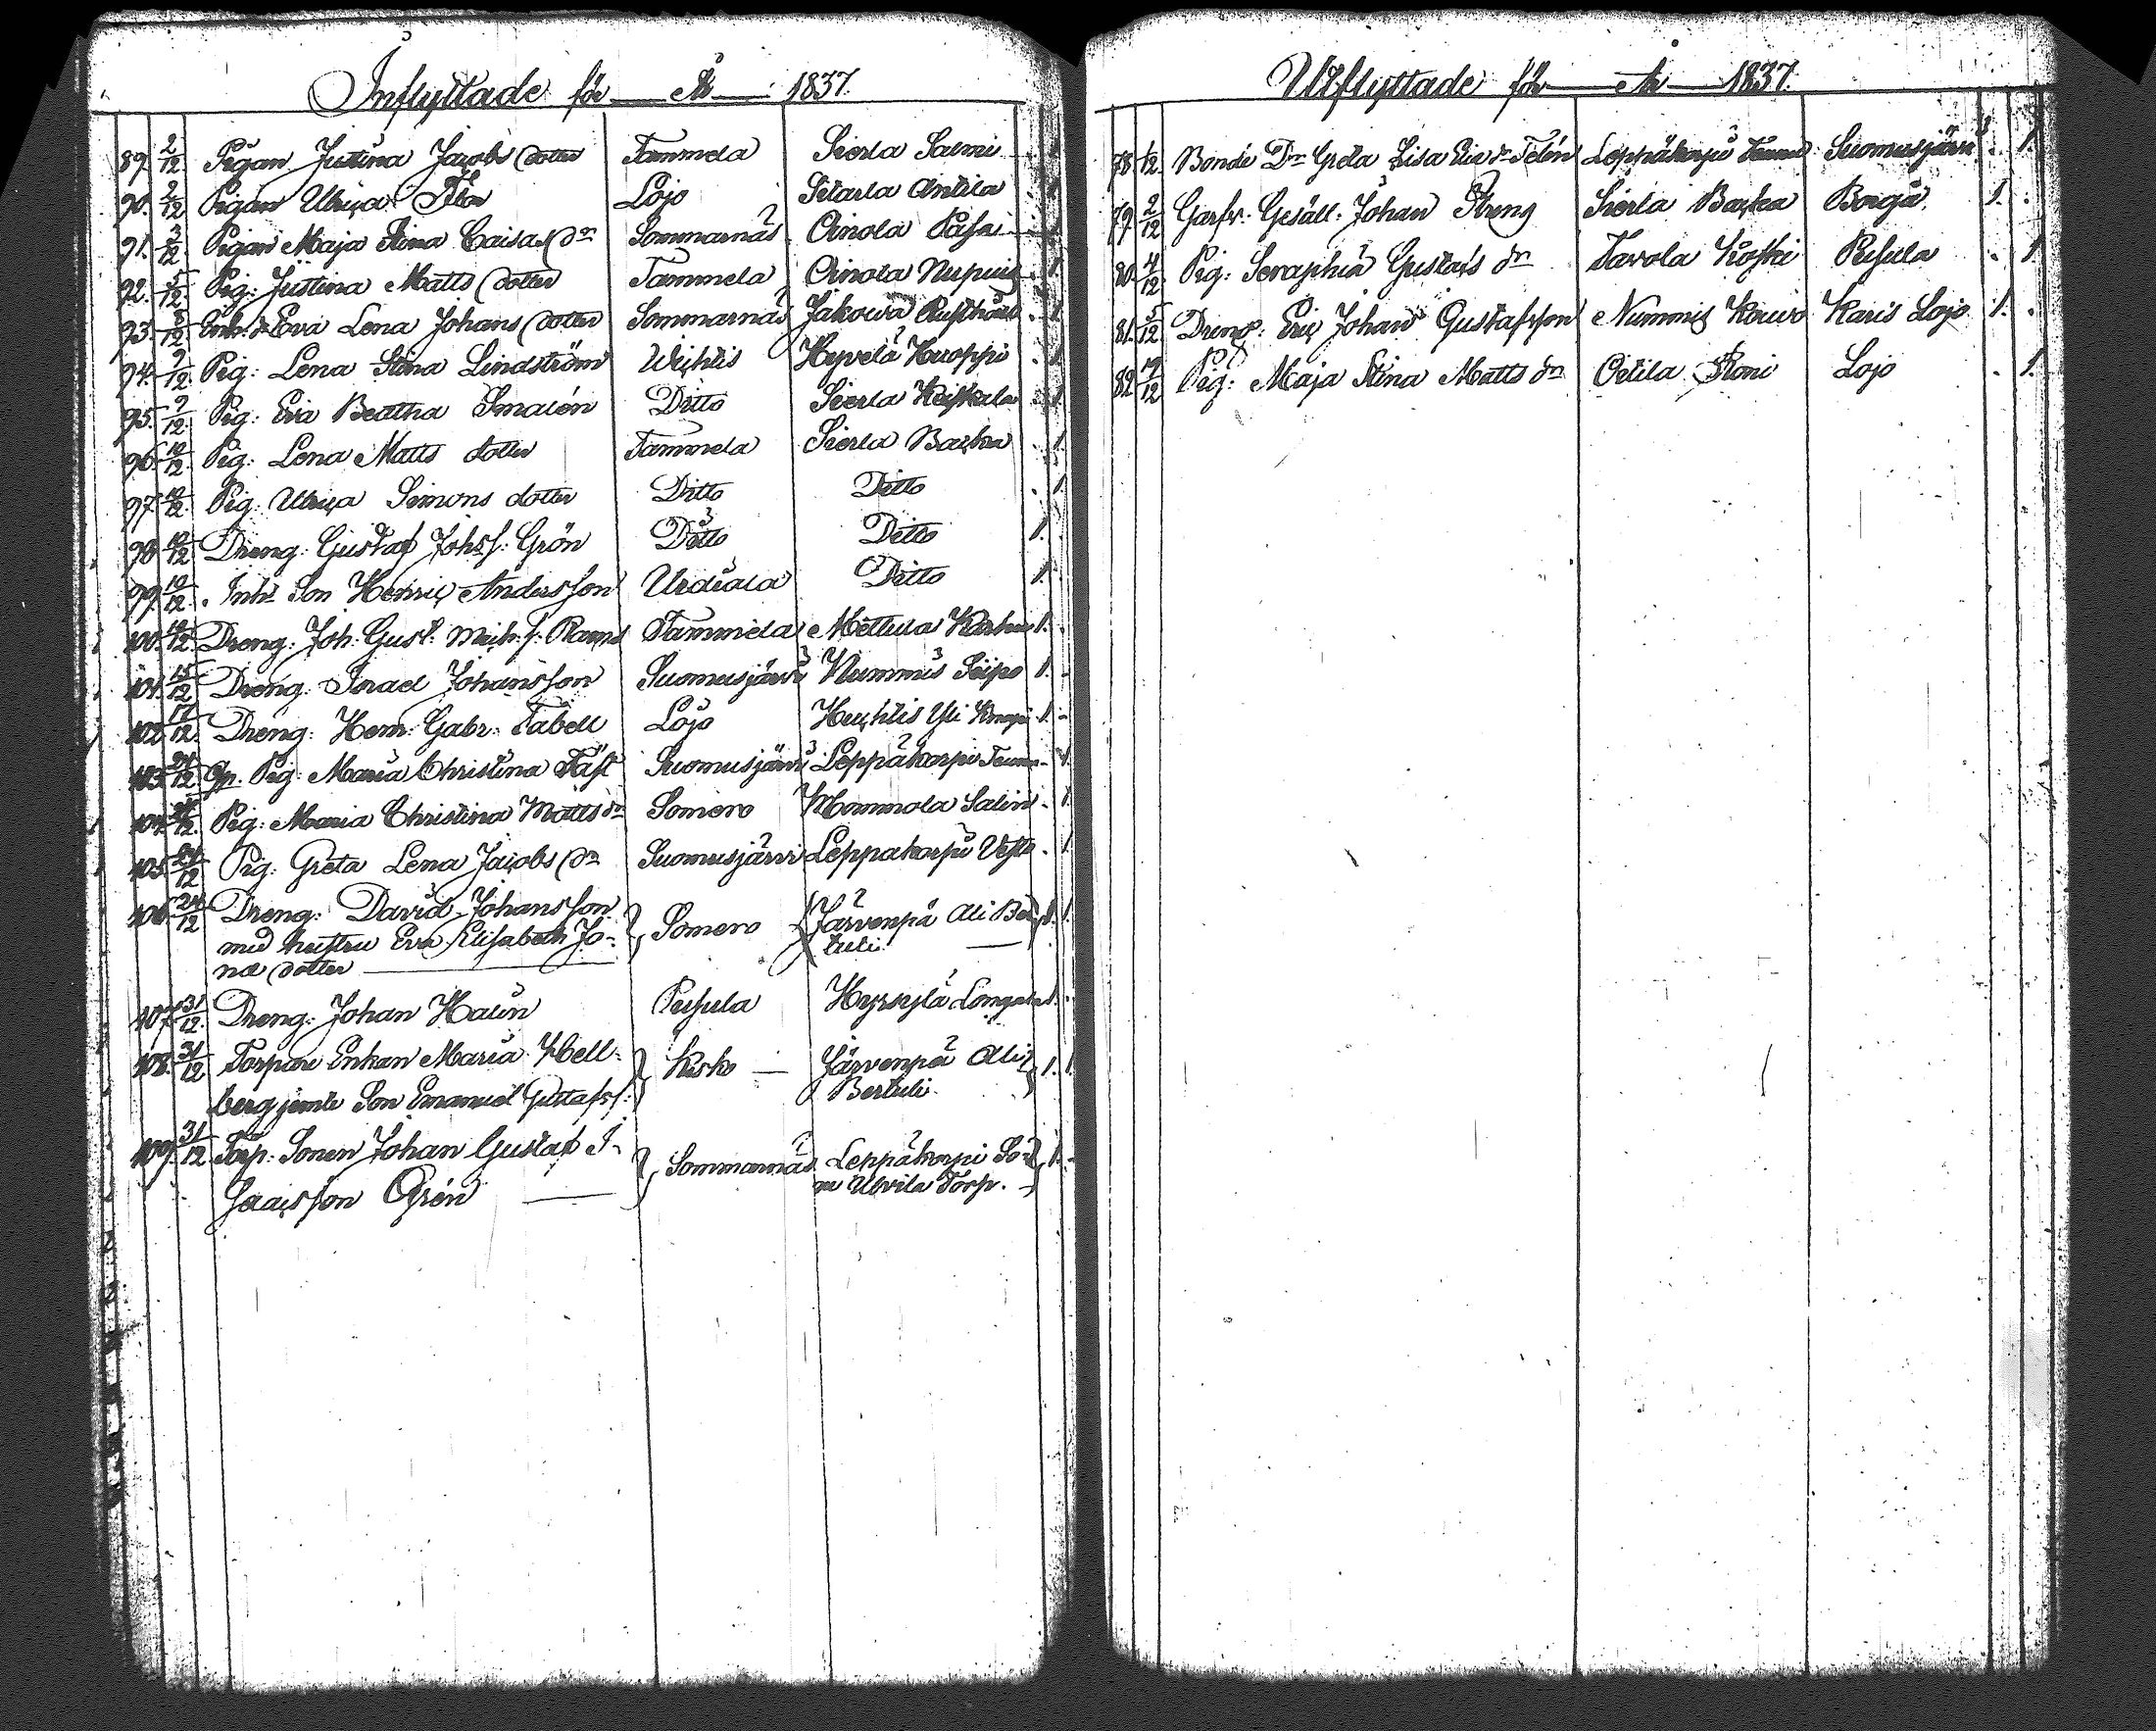 Inflyttade för År 1837.
89. 2/12 Pigan Justina Jacobs dotter Tammela Sierla Salmi 1
90. 2/12 Pigan Ulrica Flor Lojo Sitarla Antila 1
91. 3/12 Pigan Maja Stina Caisas dr Sommarnäs Oinola 1
92. 5/12 Pig: Justina Matts dotter Tammela Oinola 1.
93. 8/12 Enk: Eva Lena Johans dotter Sommarnäs Jakowa 1
94. 9/12 Pig: Lena Stina Lindström Wichtis Hyvelä Huoppi 1
95. 9/12 Pig: Eva Beatha Smalén Ditto Sierla Heikkala 1
96. 10/12 Pig: Lena Matts dotter Tammela Sierla Backa 1
97. 10/12 Pig: Ulrica Simons dotter Ditto Ditto 1
98. 10/12 Dreng: Gustaf Johss: Grön Ditto Ditto 1.
99. 10/12 Inhs Son Henric Andersson Urdiala Ditto 1.
100. 10/12 Dreng: Joh: Gust: Mich: s: Rams Tammela Mettula 1.
101. 15/12 Dreng: Israel Johansson Suomusjärvi Nummis Seipo 1.
102. 17/12 Dreng: Henr: Gabr: Tabell Lojo Huchtis Yli 1.
103. 24/12 Pig: Maria Christina Täst Suomusjärvi Leppäkorpi 1.
104. 12 Pig: Maria Christina Matts dr Somero Mommola Salin 1.
105. 24/12 Pig: Greta Lena Jacobs dr Suomusjärvi Leppäkorpi 1.
106. 24/12 Dreng: David Johansson Somero Järvenpä Ali Ber 1. 1.
med hustru Eva Elisabeth Jo- tuli
næ dotter
107. 31/12 Dreng: Johan Halin Pusula Hyrsylä 1.
108. 31/12 Torpare Enkan Maria Hell- Kisko Järvenpä Ali 1. 1.
berg jemte Son Emanuel Gustafss: Bertuli.
109. 31/12 Torp: Sonen Johan Gustaf I- Sommarnäs Leppäkorpi 1.
saacsson Grén Ulvila Torp.
Utflyttade för År 1837.
78 1/12 Bonde Dr Greta Lisa Eric dr Telén Leppäkorpi Suomusjärvi . 1.
79. 2/12 Garfv: Gesäll: Johan Streng Sierla Backa Borgå. 1. .
80. 4/12 Pig: Seraphia Gustafs dr Tavola Koski Pusula . 1
81. 5/12 Dreng: Eric Johan Gustafsson Nummis Kouvo Karis Lojo 1. .
82 17/12 Pig: Maja Stina Matts dr Oitila Lojo . 1.